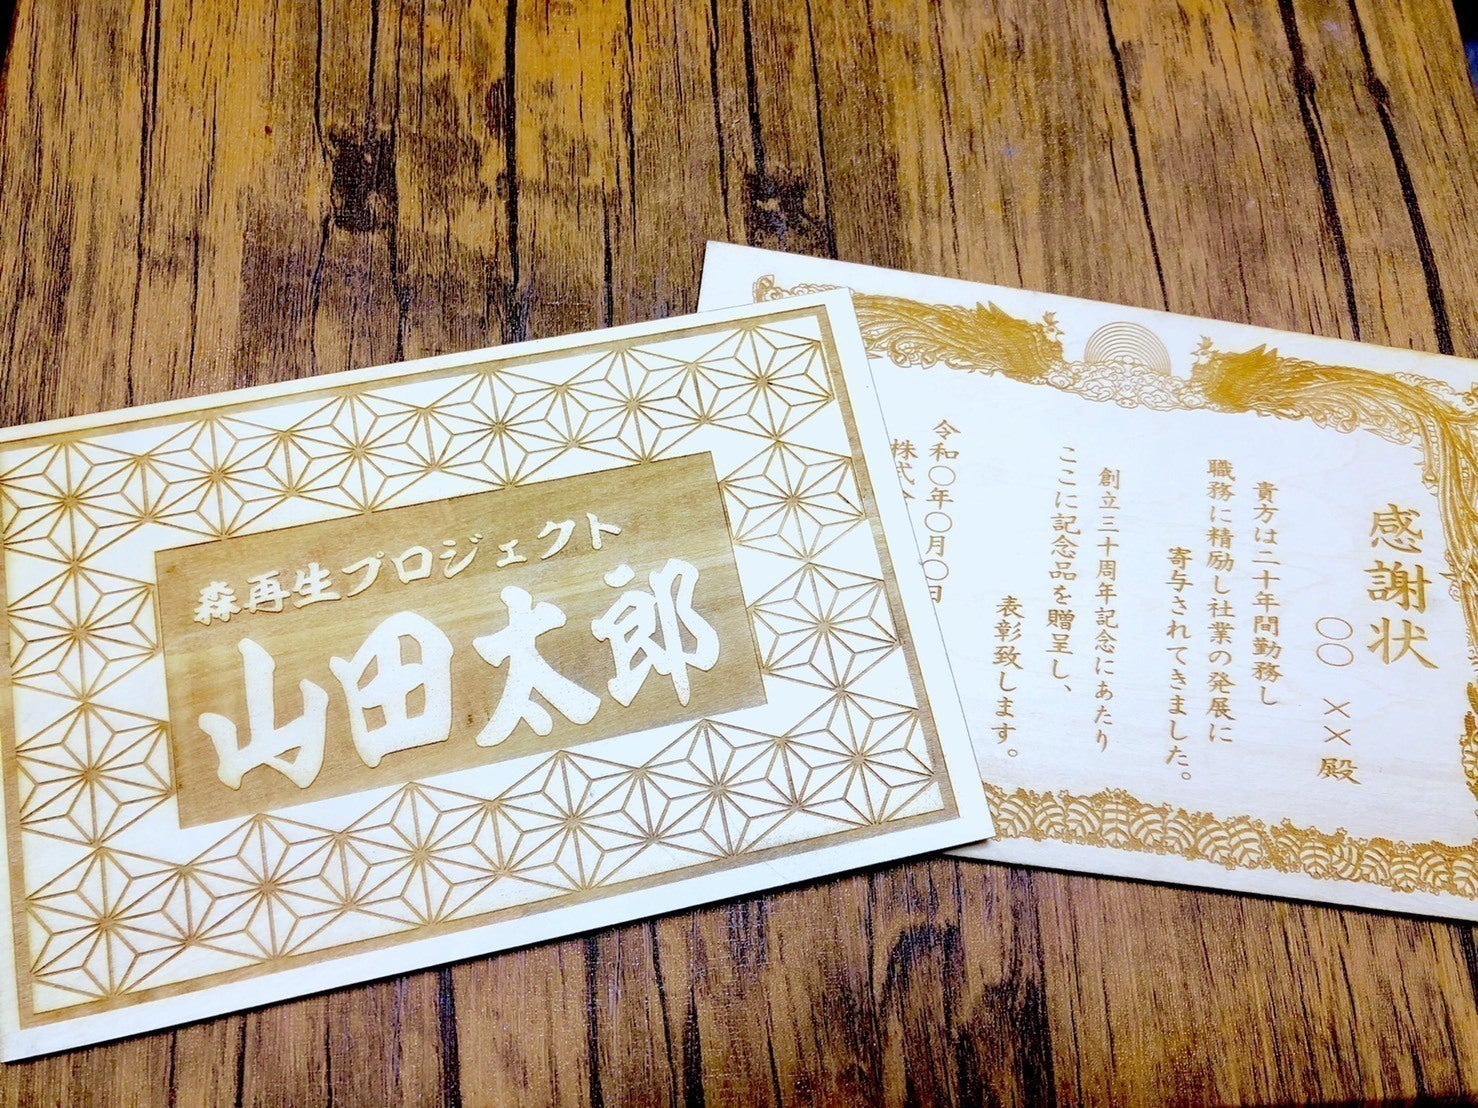 森再生プロジェクト
山田太郎
感謝状
〇〇 ××殿
貴方は二十年間勤務し
職務に精励し社業の発展に
寄与されてきました。
創立三十周年記念にあたり
ここに記念品を贈呈し、
表彰致します。
令和〇年〇月〇日
株式